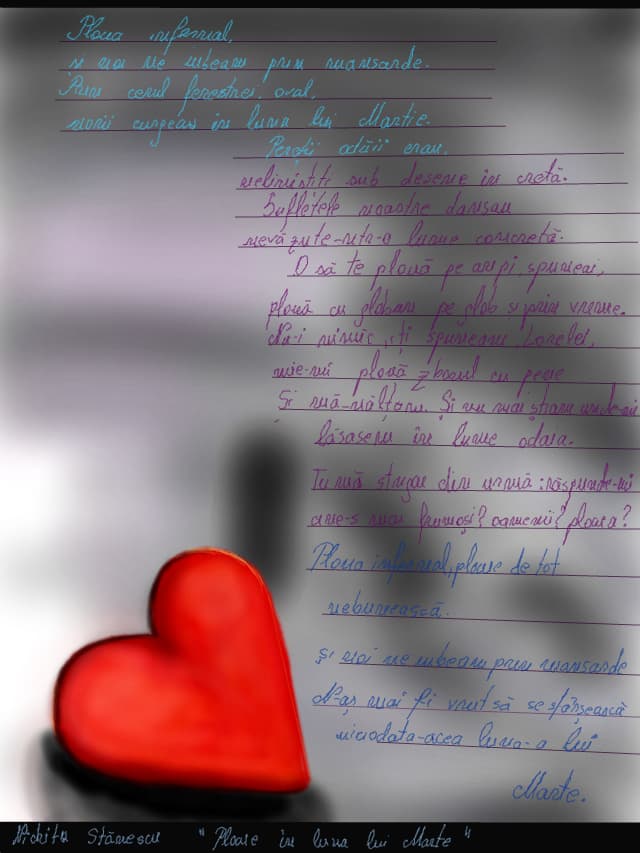 Ploua infernal,
și noi ne iubeam prin mansarde.
Prin cerul ferestrei, oval,
norii curgeau în luna lui Martie.
Pereții odăii erau,
neliniștiți sub desene în cretă.
Sufletele noastre dansau
nevăzute-ntr-o lume concretă.
O să te plouă pe aripi spuneai,
plouă cu globuri pe glob și prin vreme.
Nu-i nimic, îți spuneam Lorelei,
mie-mi plouă zborul cu pene
Și mă-nălțam. Și nu mai știam unde-mi
lăsasem în lume odaia.
Tu mă strigai din urmă: răspunde-mi
cine-s mai frumoși? oamenii? ploaia?
Ploua infernal, ploaie de tot
nebunească.
și noi ne iubeam prin mansarde
N-aș mai fi vrut să se sfârșească
niciodata-acea luna-a lui
Marte.
Nichita Stănescu "Ploaie în luna lui Marte"